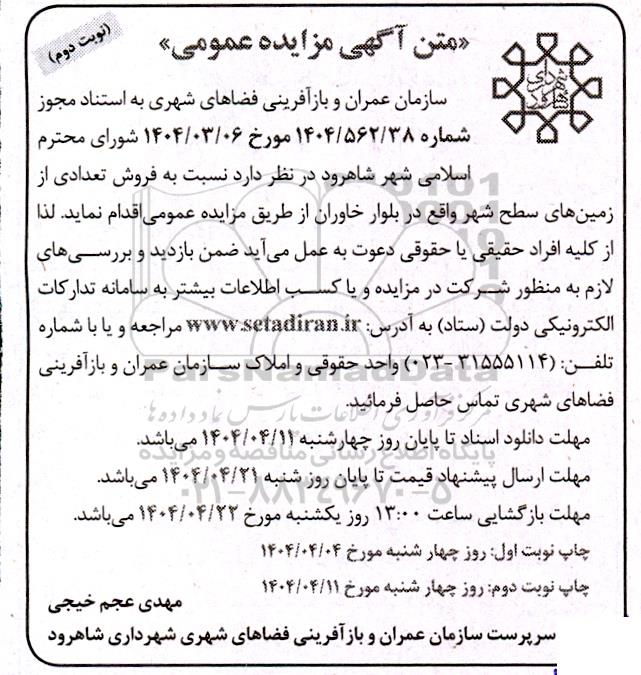 (نوبت دوم)
«متن آگهی مزایده عمومی»
شهرداری شاهرود
سازمان عمران و بازآفرینی فضاهای شهری به استناد مجوز
شماره ۱۴۰۴/۵۶۲/۳۸ مورخ ۱۴۰۴/۰۳/۰۶ شورای محترم
اسلامی شهر شاهرود در نظر دارد نسبت به فروش تعدادی از
زمین‌های سطح شهر واقع در بلوار خاوران از طریق مزایده عمومی‌اقدام نماید. لذا
از کلیه افراد حقیقی یا حقوقی دعوت به عمل می‌آید ضمن بازدید و بررسی‌های
لازم به منظور شرکت در مزایده و یا کسب اطلاعات بیشتر به سامانه تدارکات
الکترونیکی دولت (ستاد) به آدرس: www.setadiran.ir مراجعه و یا با شماره
تلفن: (۳۱۵۵۵۱۱۴ -۰۲۳) واحد حقوقی و املاک سازمان عمران و بازآفرینی
فضاهای شهری تماس حاصل فرمائید.
مهلت دانلود اسناد تا پایان روز چهارشنبه ۱۴۰۴/۰۴/۱۱ می‌باشد.
مهلت ارسال پیشنهاد قیمت تا پایان روز شنبه ۱۴۰۴/۰۴/۲۱ می‌باشد.
مهلت بازگشایی ساعت ۱۳:۰۰ روز یکشنبه مورخ ۱۴۰۴/۰۴/۲۲ می‌باشد.
چاپ نوبت اول: روز چهار شنبه مورخ ۱۴۰۴/۰۴/۰۴
چاپ نوبت دوم: روز چهار شنبه مورخ ۱۴۰۴/۰۴/۱۱
مهدی عجم خیجی
سرپرست سازمان عمران و بازآفرینی فضاهای شهری شهرداری شاهرود
ParsNamadData
مرکز فرآوری اطلاعات پارس نماد داده ها
پایگاه اطلاع رسانی مناقصه و مزایده
۰۲۱-۸۸۳۴۹۶۷۰-۵